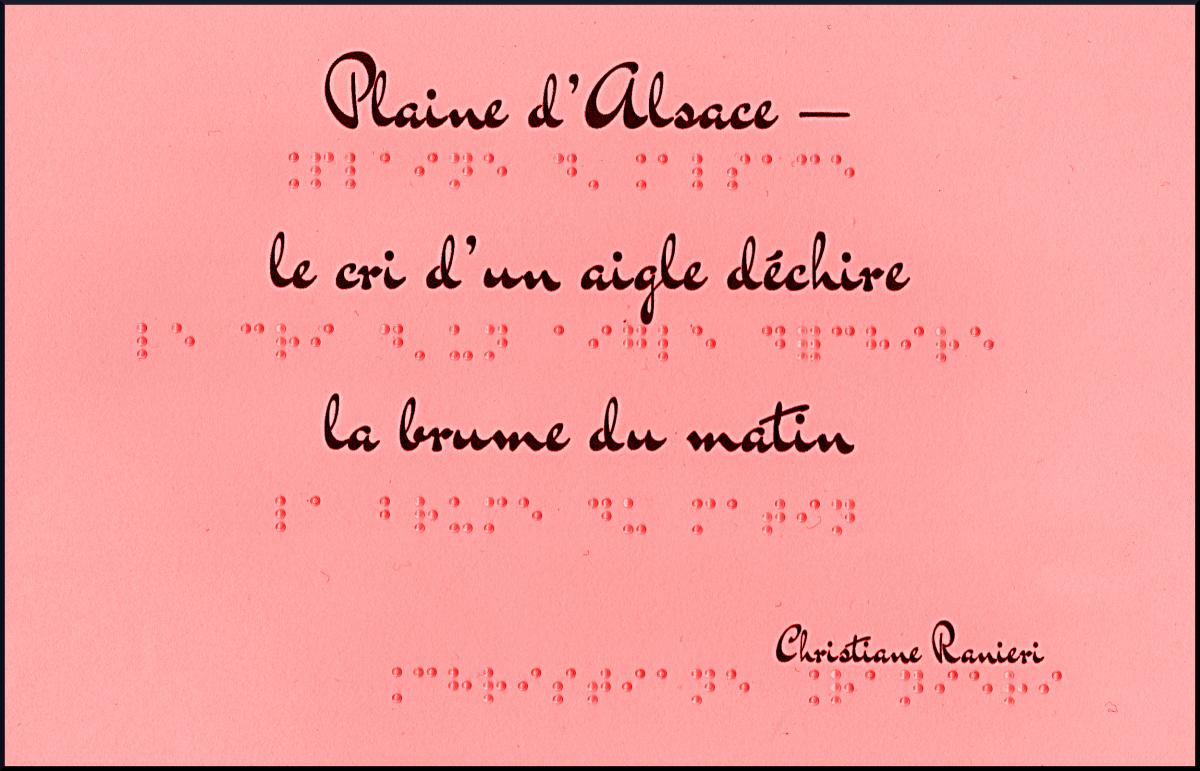 Plaine d'Alsace —
le cri d'un aigle déchire
la brume du matin
Christiane Ranieri